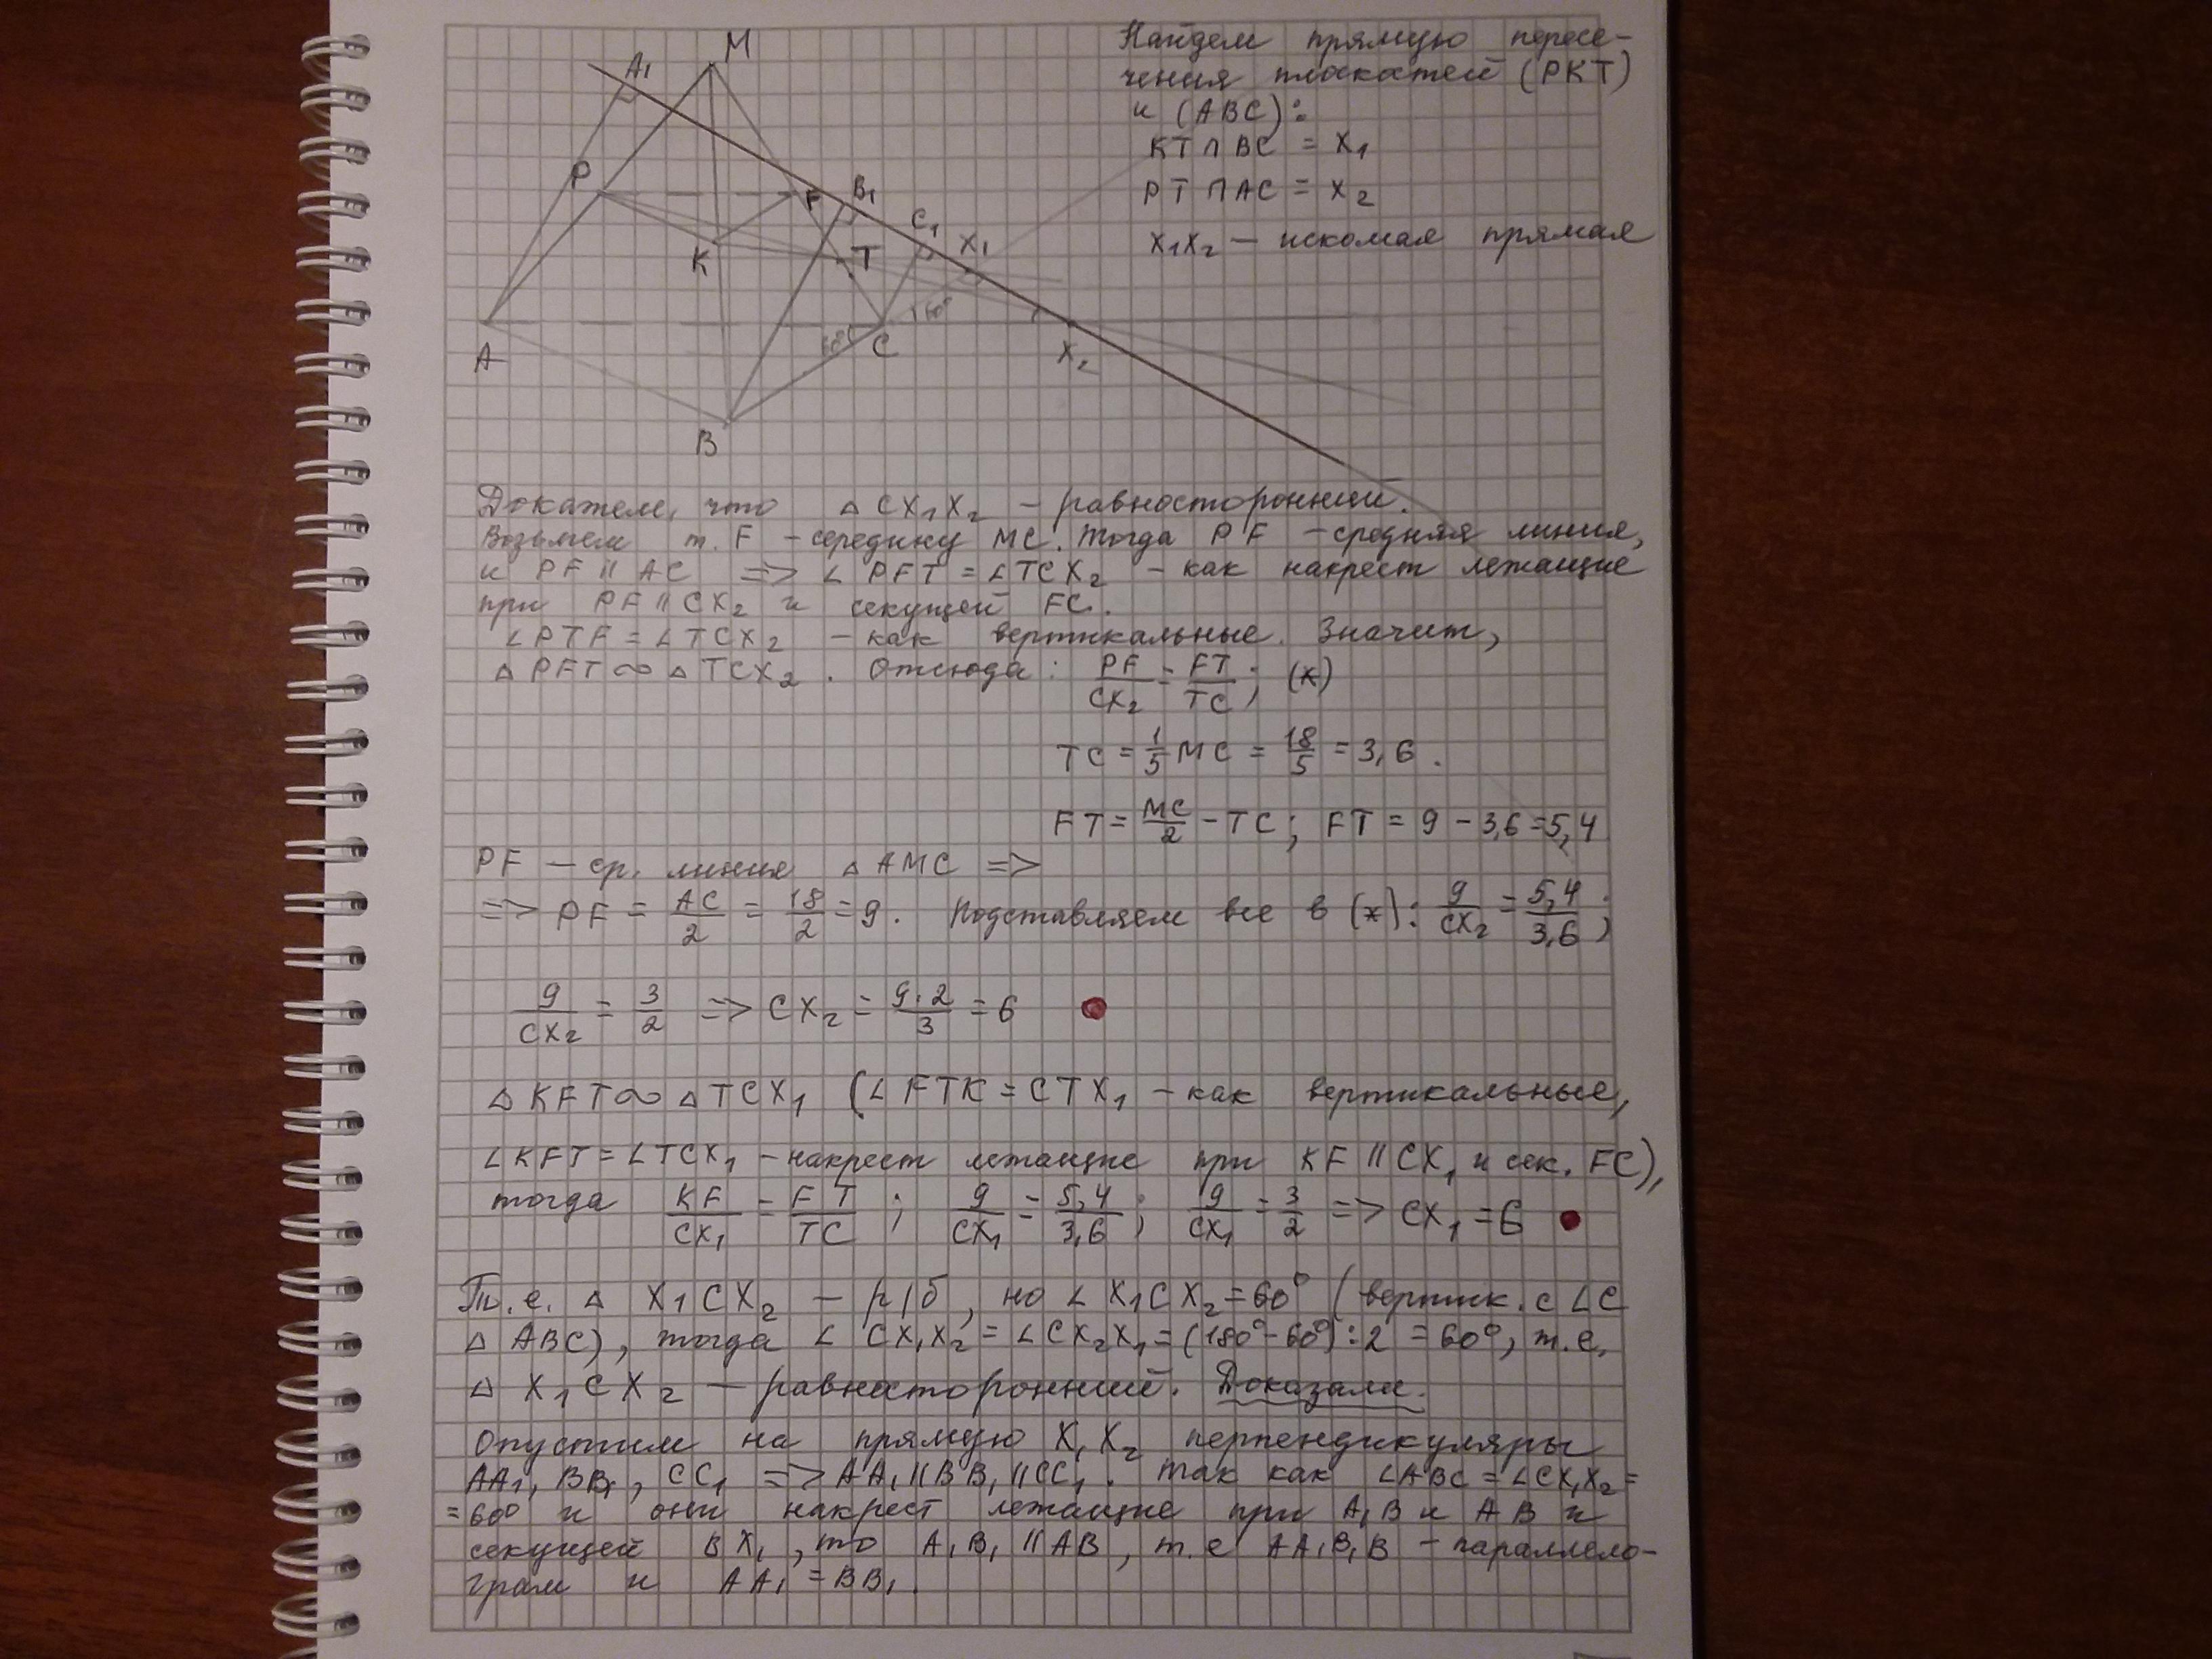 M
A₁
P
F
B₁
C₁
X₁
K
T
A
C
60°
60°
X₂
B
Найдем прямую пересе-
чения плоскостей (PKT)
и (ABC):
KT∩BC = X₁
PT∩AC = X₂
X₁X₂ — искомая прямая
Докажем, что △CX₁X₂ — равносторонний.
Возьмем т. F — середину MC. Тогда PF — средняя линия,
и PF ∥ AC => ∠PFT = ∠TCX₂ — как накрест лежащие
при PF ∥ CX₂ и секущей FC.
∠PTF = ∠TCX₂ — как вертикальные. Значит,
△PFT ∞ △TCX₂. Отсюда: PF/CX₂ = FT/TC; (*)
TC = 1/5 MC = 18/5 = 3,6.
FT = MC/2 − TC; FT = 9 − 3,6 = 5,4
PF — ср. линия △AMC =>
=> PF = AC/2 = 18/2 = 9. Подставляем все в (*): 9/CX₂ = 5,4/3,6;
9/CX₂ = 3/2 => CX₂ = 9·2/3 = 6
△KFT ∞ △TCX₁ (∠FTK = CTX₁ — как вертикальные,
∠KFT = ∠TCX₁ — накрест лежащие при KF ∥ CX₁ и сек. FC),
тогда KF/CX₁ = FT/TC; 9/CX₁ = 5,4/3,6; 9/CX₁ = 3/2 => CX₁ = 6
Т.е. △X₁CX₂ — р/б, но ∠X₁CX₂ = 60° (вертик. с ∠C
△ABC), тогда ∠CX₁X₂ = ∠CX₂X₁ = (180° − 60°):2 = 60°, т.е.
△X₁CX₂ — равносторонний. Доказали.
Опустим на прямую X₁X₂ перпендикуляры
AA₁, BB₁, CC₁ => AA₁∥BB₁∥CC₁. Так как ∠ABC = ∠CX₁X₂ =
= 60° и они накрест лежащие при A₁B и AB и
секущей BX₁, то A₁B₁ ∥ AB, т.е AA₁B₁B — параллело-
грам и AA₁ = BB₁.